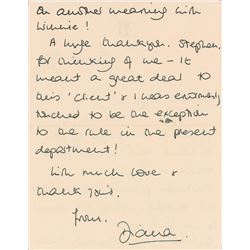 On another meaning with
Winnie!
A huge thankyou. Stephen,
for thinking of me - it
meant a great deal to
this 'client' & I was enormously
touched to be the exception
to the rule in the present
department!
With much love &
thank you's.
from.
Diana.